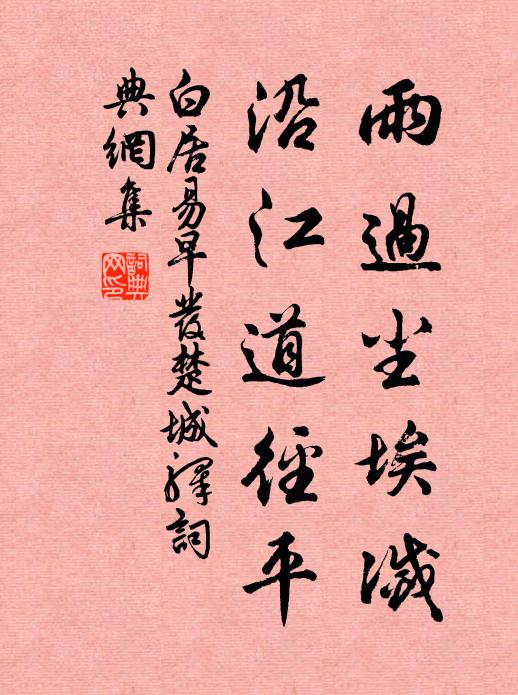 雨過尘埃滅
沿江道徑平
白居易早發楚城驛詞
典網集
詞典
网印